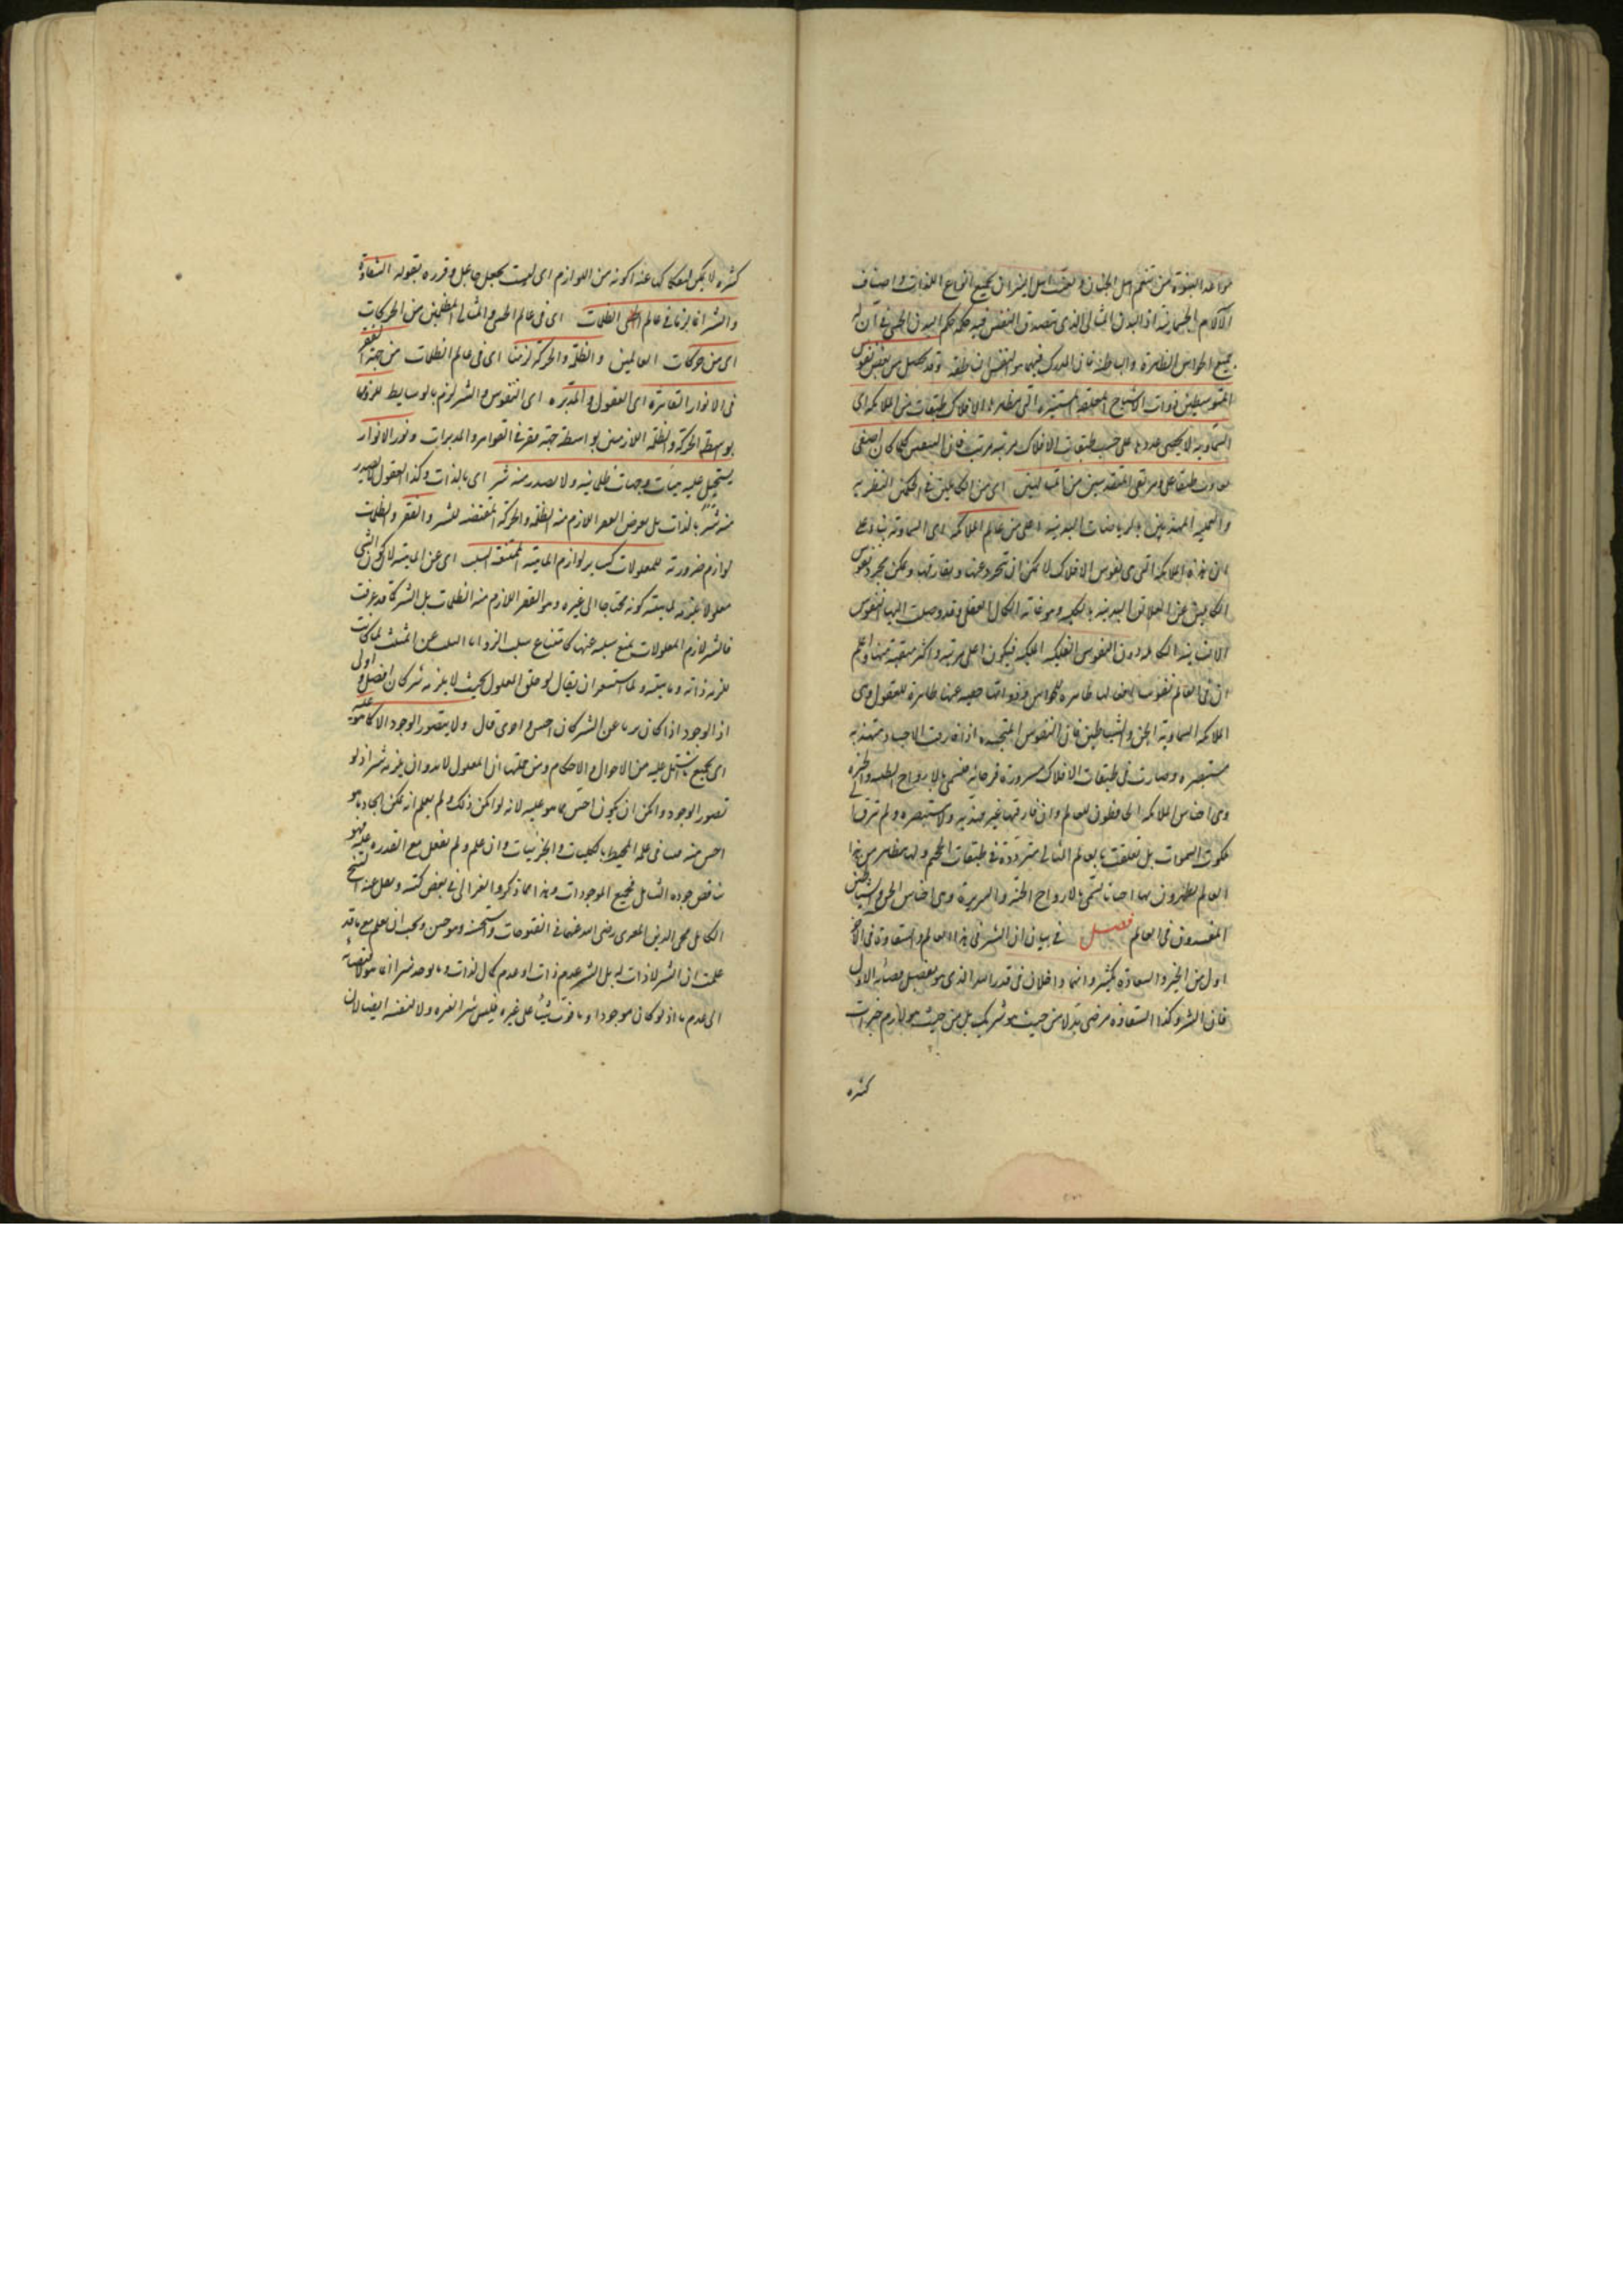 مواعد النبوة من تنعم اهل الجنان وتعذب اهل النيران بجميع انواع اللذات واصناف
الآلام الجسمانية اذ البدن المثالى الذى تتصرف النفس فيه حكمه حكم البدن الحسى فى ان له
جميع الحواس الظاهرة والباطنة فان المدرك فيهما هو النفس الناطقة وقد يحصل من بعض نفوس
المتوسطين ذوات الاشباح المعلقة المستنيرة التى مظاهرها الافلاك طبقات من الملائكة اى
السماوية لا يحصى عددها على حسب طبقات الافلاك مرتبة مرتبة فان المتعين كلما كان اصفى
طبقة اعلى ومرتقى المتقدسين من المتألهين اى من الكاملين فى الحكمتين النظرية
والعملية المهذبين بالرياضات البدنية اعلى من عالم الملائكة اى السماوية
لان هذه الملائكة التى هى نفوس الافلاك لا يمكن ان تتجرد عنها وتفارقها ويمكن تجرد نفوس
الكاملين عن العلائق البدنية بالكلية وهو غاية الكمال العقلى وقد وصلت اليها النفوس
الانسانية الكاملة دون النفوس الفلكية الملكية فيكون اعلى مرتبة واكثر منقبة منها واعلم
ان فى العالم نفوسا ظاهرة للعقول وهى
الملائكة السماوية والجن والشياطين فان النفوس المتجسدة اذا فارقت الاجساد متهذبة
مستبصرة وصارت فى طبقات الافلاك مسرورة فرحانة فتسمى بالارواح الطيبة والخيرة
وهى اجناس الملائكة الحافظون للعالم وان فارقتها غير مهذبة ولا مستبصرة ولم ترق الى
ملكوت السموات بل تعلقت بالعالم المثالى مترددة فى طبقات الجحيم ولها مظاهر من هذا
العالم يظهرون بها احيانا تسمى بالارواح الخبيثة والشريرة وهى اجناس الجن والشياطين
المفسدون فى العالم فصل فى بيان ان الشر فى هذا العالم والشقاوة فى الآخرة
اقل من الخير والسعادة بكثير وانما دخلان فى قدر الله الذى هو تفصيل قضائه الاول
فان الشر وكذا الشقاوة مرضى به لا من حيث هو شر بل من حيث هو لازم خيرات
كثيرة
كثيرة لا يمكن انفكاكها عنه لكونه من اللوازم اى ليست بجعل جاعل وقرره بقوله الشقاوة
والشر انما لزما فى عالم الظلمات اى فى عالم الحس والمثالى المظلمين من الحركات
اى من حركات العالمين والظلمة والحركة لزمتا اى فى عالم الظلمات من جهة الفقر
فى الانوار القاهرة اى العقول والمدبرة اى النفوس والشر لزم بالوسايط للزومها
بواسطة الحركة والظلمة اللازمتين بواسطة جهة فقر فى القواهر والمدبرات ونور الانوار
يستحيل عليه هيئات وجهات ظلمانية ولا يصدر منه شر اى بالذات وكذا العقول لا يصدر
منه شر بالذات بل بعرض الفقر اللازم منه الظلمة والحركة المقتضية للشر والفقر والظلمات
لوازم ضرورية للمعلولات كساير لوازم الماهية الممتنعة السلب اى عن الماهية لان كون الشى
معلولا لغيره لماهيته كونه محتاجا الى غيره وهو الفقر اللازم منه الظلمات بل الشر كما قد عرفت
فالشر لازم المعلولات يمتنع سلبه عنها كامتناع سلب الزوايا الثلث عن المثلث لما كانت
يلزمه ذاته وماهيته ولما استشعر ان يقال لو خلق المعلول بحيث لا يلزمه شر كان افضل واولى
اذ الوجود اذا كان بريا عن الشر كان احسن واحرى قال ولا يتصور الوجود الا كما هو عليه
اى بجميع ما يشتمل عليه من الاحوال والاحكام ومن جملتها ان المعلول لا بد وان يلزمه شر اذ لو
تصور الوجود وامكن ان يكون احسن مما هو عليه لانه لو امكن ذلك ولم يعلم انه يمكن ايجاد ما هو
احسن منه علمه المحيط بالكليات والجزئيات وان علم ولم يفعل مع القدرة عليه فهو
يناقض جوده الشامل لجميع الموجودات وهذا مما ذكره الغزالى فى بعض كتبه ونقل عنه الشيخ
الكامل محى الدين المغربى رضى الله عنهما فى الفتوحات واستحسنه وهو حسن ويجب ان يعلم مع ما قد
علمت ان الشر لا ذات له بل الشر عدم ذات او عدم كمال لذات وما يوجد شرا انما هو لافضائه
الى عدم ما اذ لو كان موجودا وما فوت شيئا على غيره فليس شرا لغيره ولا لنفسه ايضا لان